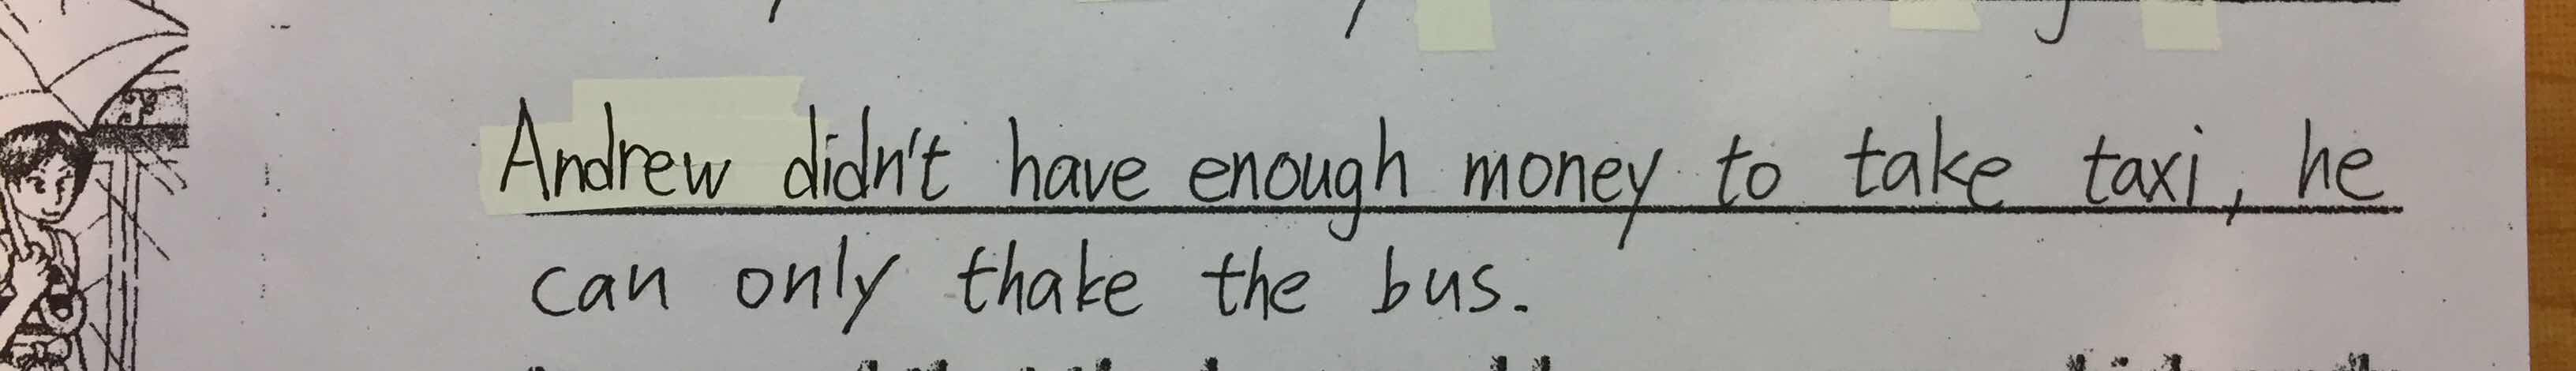 Andrew didn't have enough money to take taxi, he
can only thake the bus.